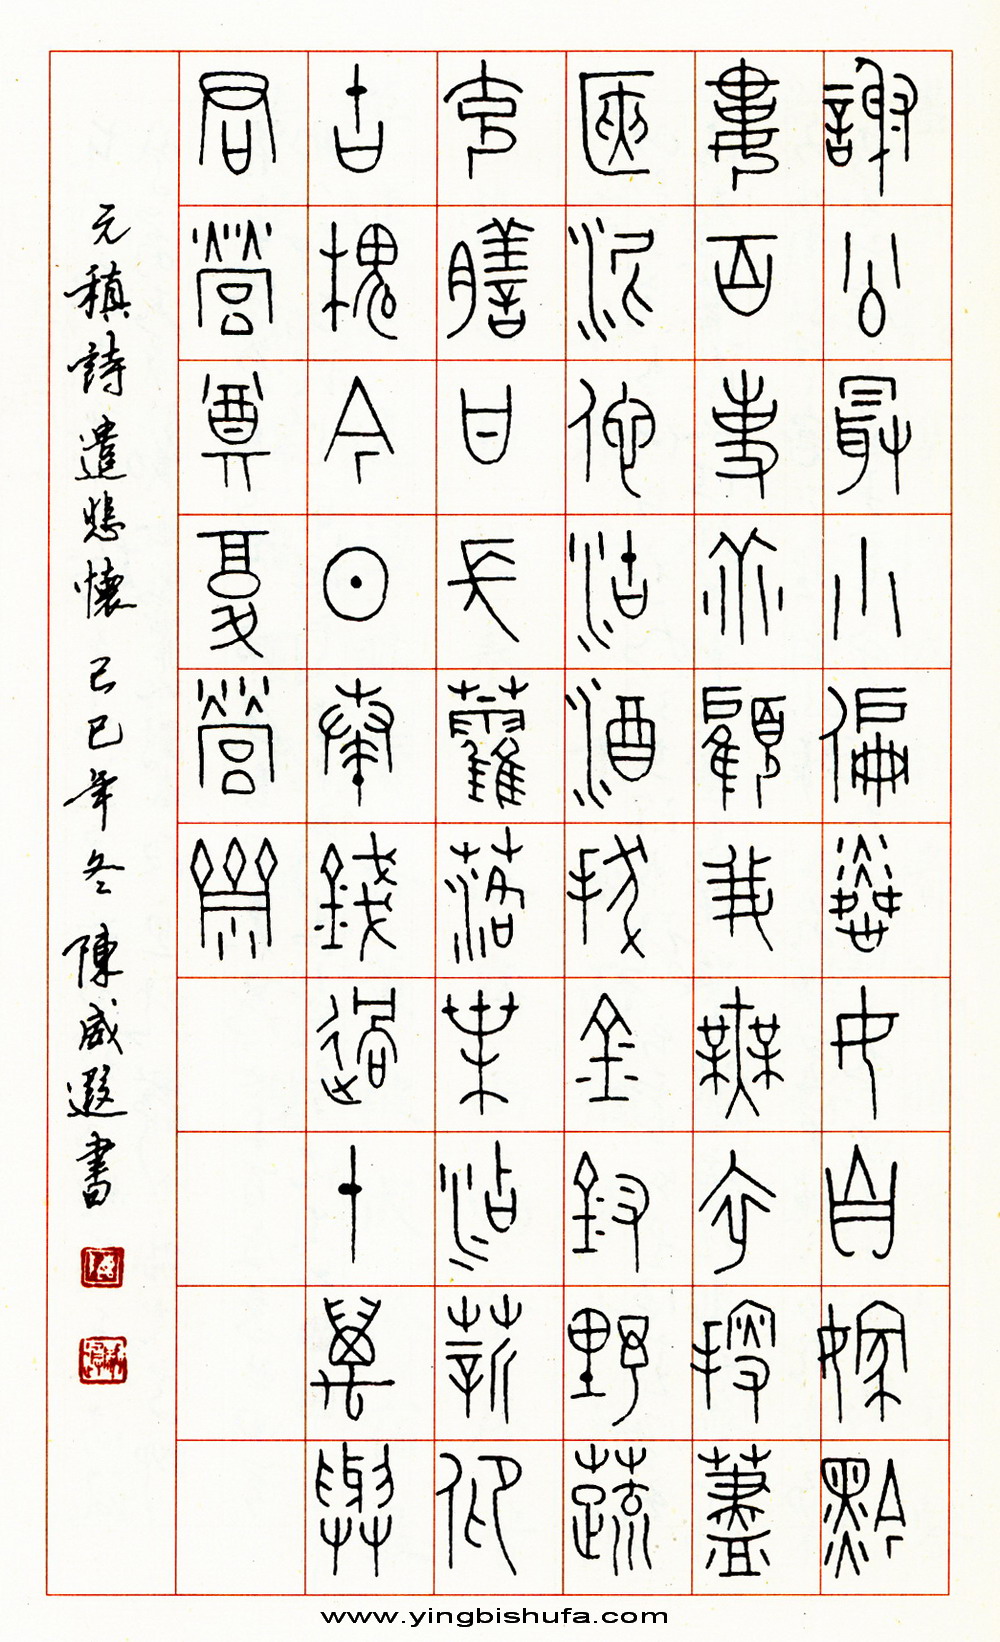 謝公最小偏憐女自嫁黔
婁百事乖顧我無衣搜藎
篋泥他沽酒拔金釵野蔬
充膳甘長藿落葉添薪仰
古槐今日俸錢過十萬與
君營奠復營齋
元稹詩遣悲懷 己巳年冬 陳威遐書
www.yingbishufa.com